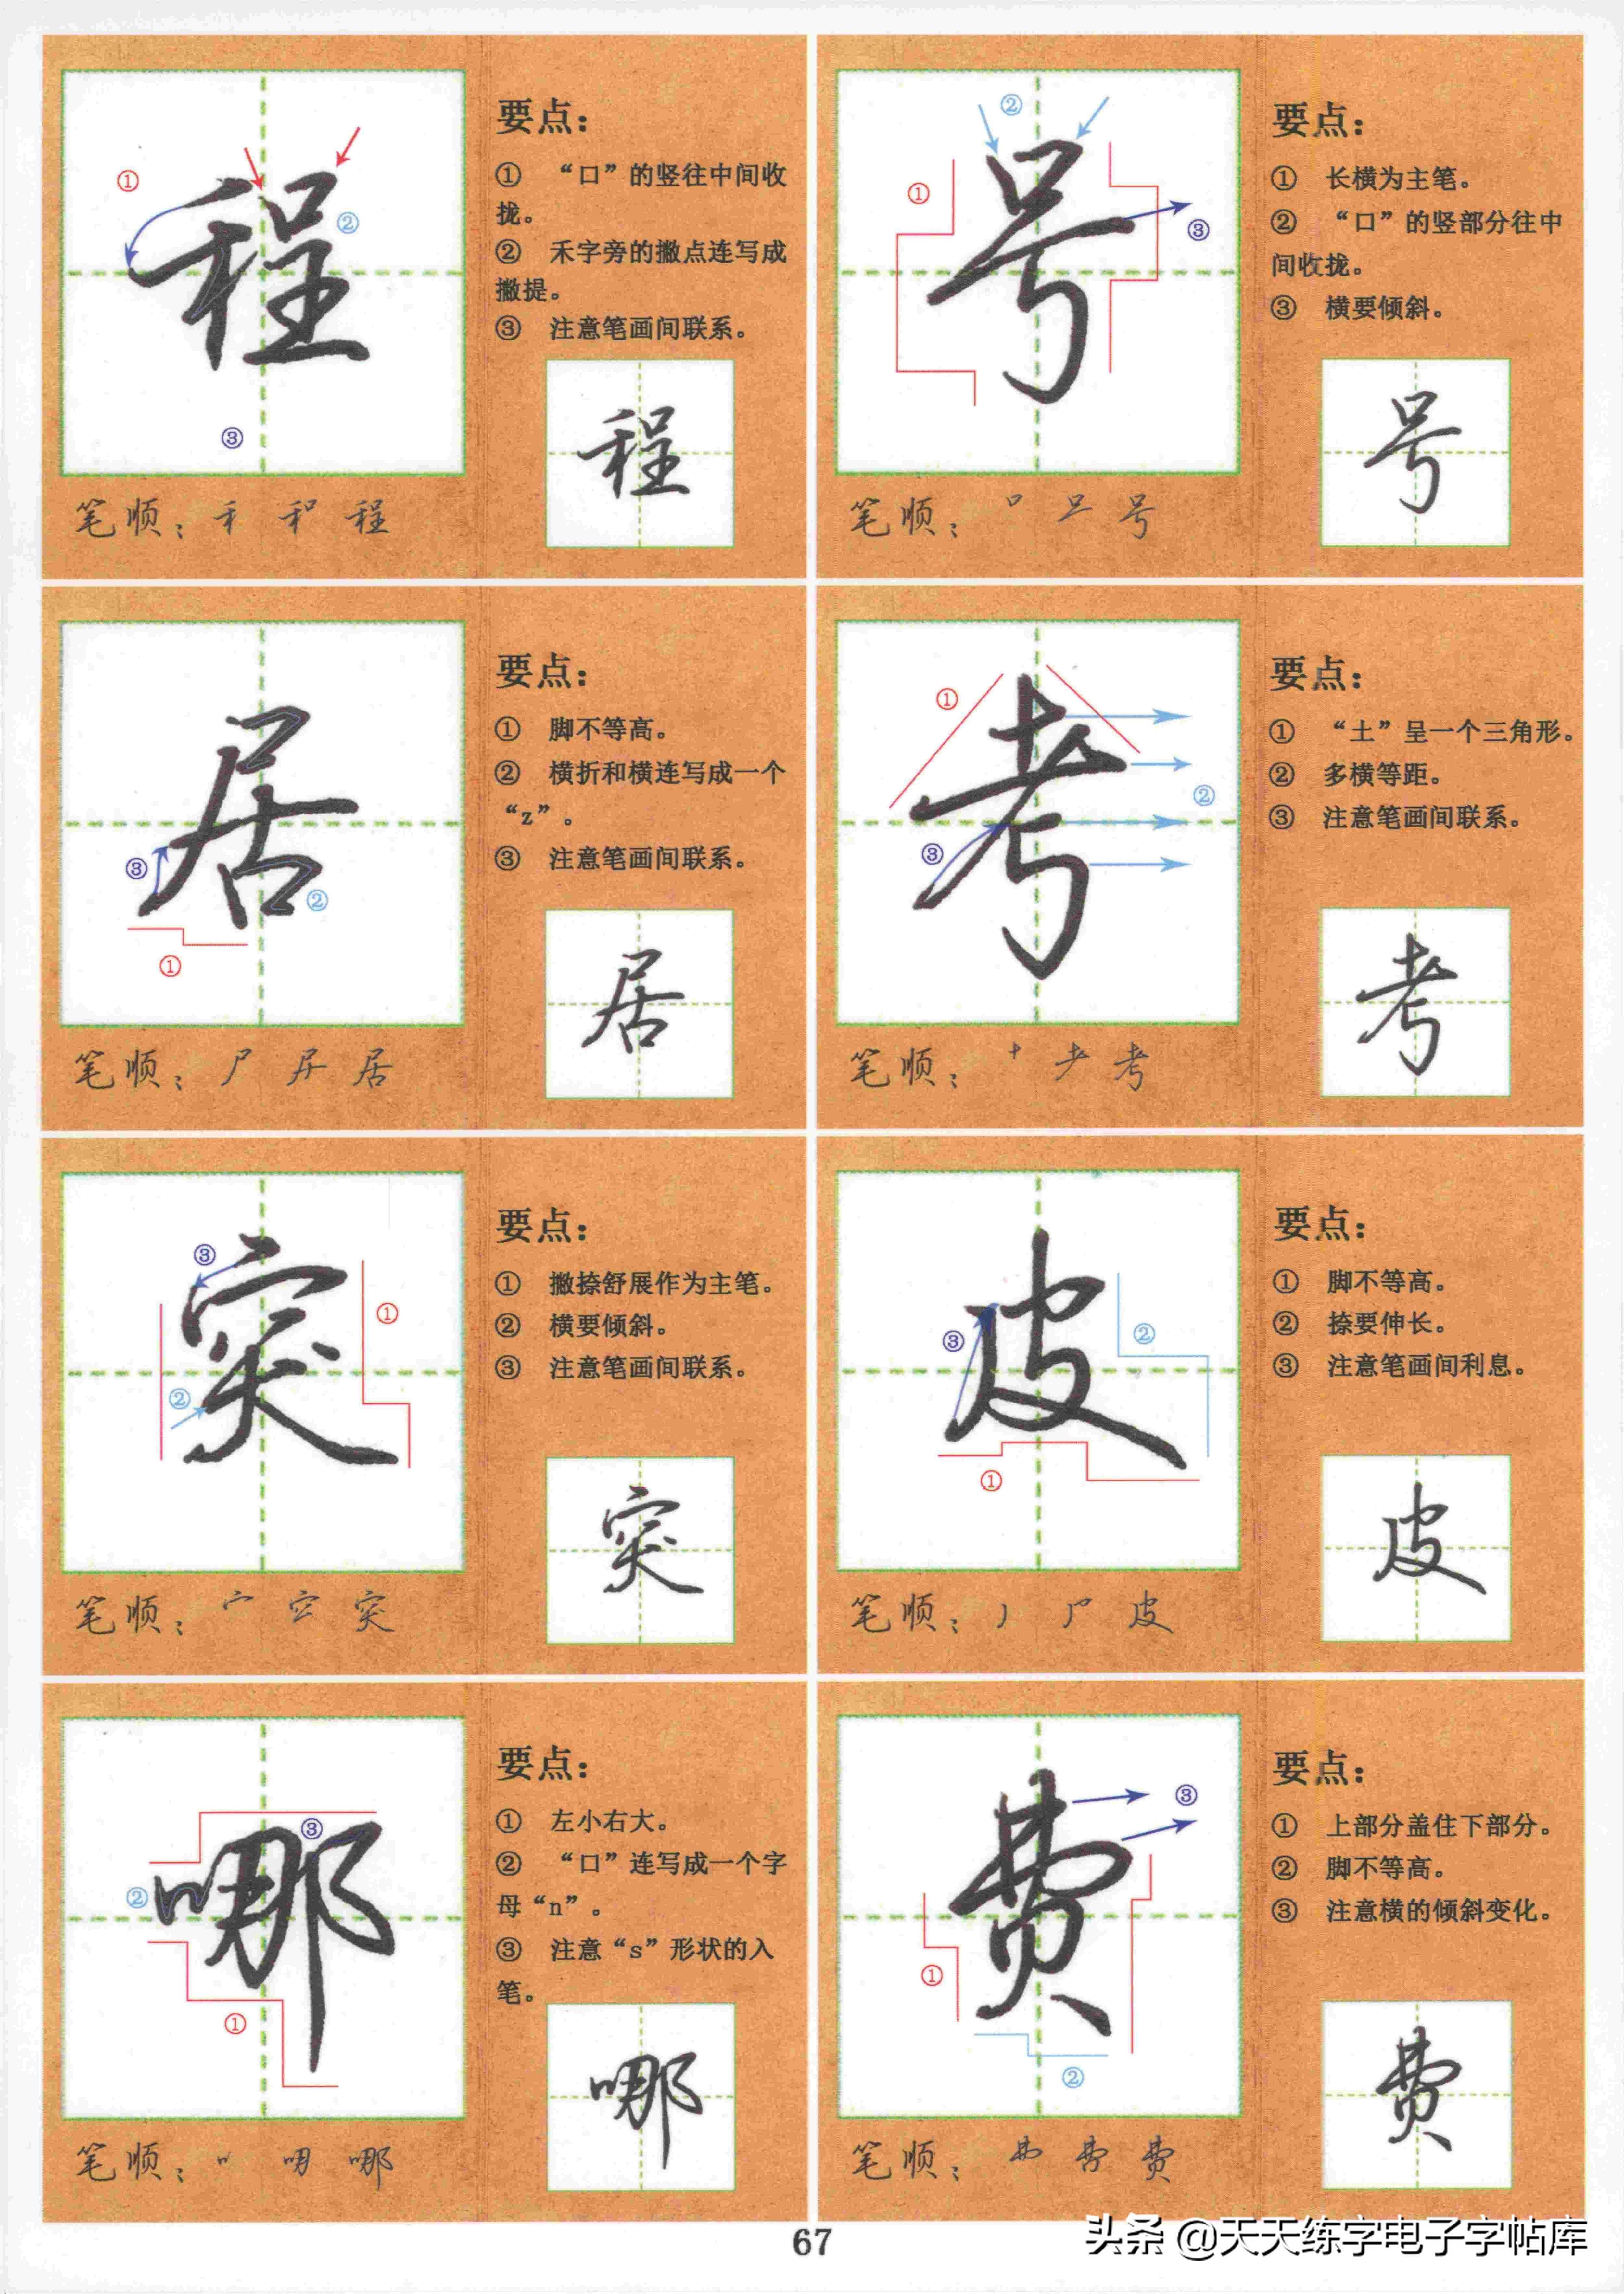 程
①
②
③
要点：
① “口”的竖往中间收
拢。
② 禾字旁的撇点连写成
撇提。
③ 注意笔画间联系。
程
笔顺：禾 和 程
号
①
②
③
要点：
① 长横为主笔。
② “口”的竖部分往中
间收拢。
③ 横要倾斜。
号
笔顺：口 号
居
③
②
①
要点：
① 脚不等高。
② 横折和横连写成一个
“z”。
③ 注意笔画间联系。
居
笔顺：尸 居
考
①
②
③
要点：
① “土”呈一个三角形。
② 多横等距。
③ 注意笔画间联系。
考
笔顺：十 耂 考
突
③
①
②
要点：
① 撇捺舒展作为主笔。
② 横要倾斜。
③ 注意笔画间联系。
突
笔顺：宀 空 突
皮
③
②
①
要点：
① 脚不等高。
② 捺要伸长。
③ 注意笔画间利息。
皮
笔顺：丿 皮
哪
③
②
①
要点：
① 左小右大。
② “口”连写成一个字
母“n”。
③ 注意“s”形状的入
笔。
哪
笔顺：哪
费
③
①
②
要点：
① 上部分盖住下部分。
② 脚不等高。
③ 注意横的倾斜变化。
费
笔顺：弗 费
67
头条 @天天练字电子字帖库